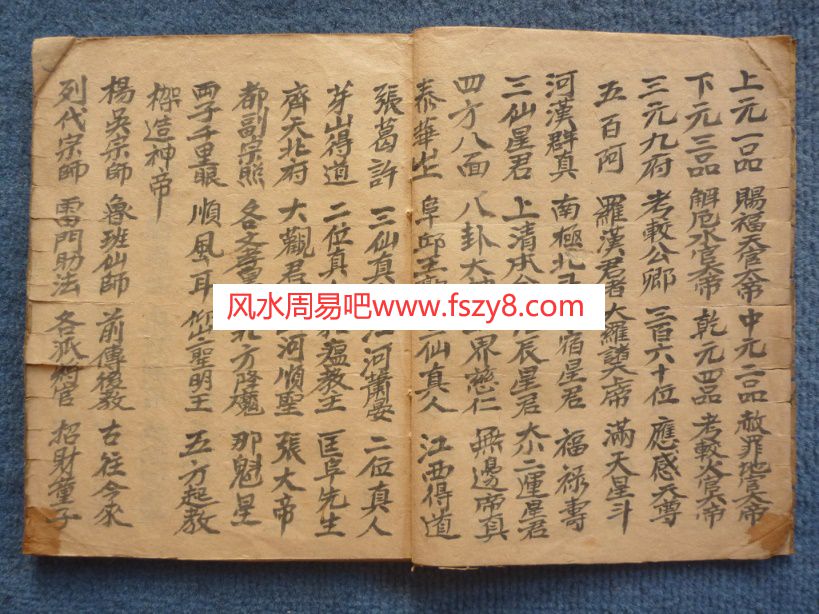 上元一品 賜福天官大帝 中元二品 赦罪地官大帝
下元三品 解厄水官大帝 乾元四品 考較火官大帝
三元九府 考較公卿 三百六十位 應感天尊
五百阿 羅漢君者 大羅 帝 滿天星斗
河漢群真 南極北斗 宿星君 福祿壽
三仙星君 上清 辰星君 二運星君
四方八面 八卦大 界慈仁 無邊帝真
泰華山 阜邱王 仙真人 江西得道
張葛許 三仙真 江河蕭晏 二位真人
茅山得道 二位真人 瘟教主 匡阜先生
齊天北府 大觀君 河順聖 張大帝
都副宗照 各 北方降魔 那魁星
両子千里眼 順風耳 聖明王 五方起教
桝造神帝
楊吳宗師 魯班仙師 前傳後教 古往今來
列代宗師 雷門助法 各派總官 招財童子
风水周易吧www.fszy8.com